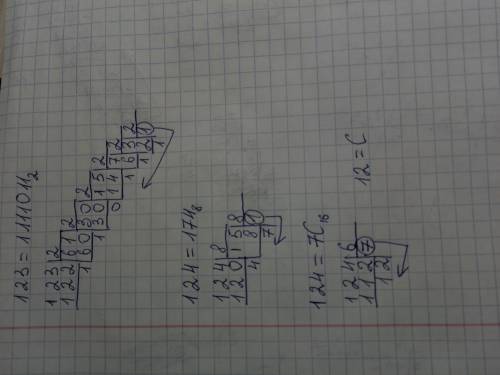 123 = 1111011₂
123 2
122 61 2
1 60 30 2
1 30 15 2
0 14 7 2
1 6 3 2
1 2 1
1
124 = 174₈
124 8
120 15 8
4 8 1
7
124 = 7C₁₆
124 6
112 7
12
12 = C